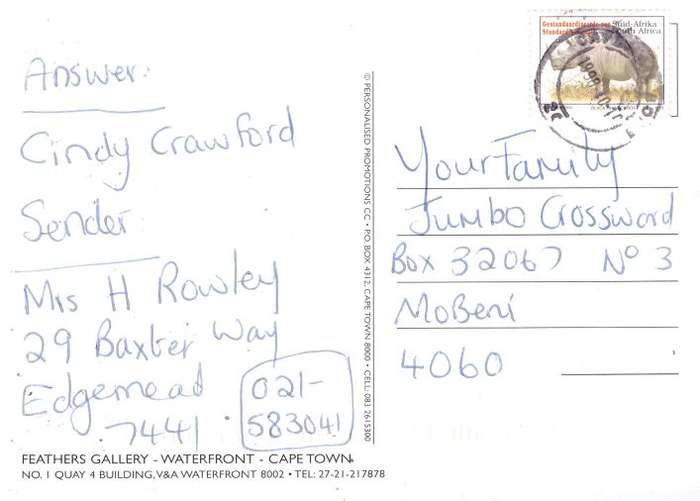 Answer:
Cindy Crawford
Sender:
Mrs H Rowley
29 Baxter Way
Edgemead
7441
021-
583041
FEATHERS GALLERY - WATERFRONT - CAPE TOWN
NO. 1 QUAY 4 BUILDING, V&A WATERFRONT 8002 • TEL: 27-21-217878
© PERSONALISED PROMOTIONS CC • P.O. BOX 4312, CAPE TOWN 8000 • CELL: 083 2615300
Standard
Suid-Afrika
South Africa
Your Family
Jumbo Crossword
Box 32067 No 3
MoBeni
4060